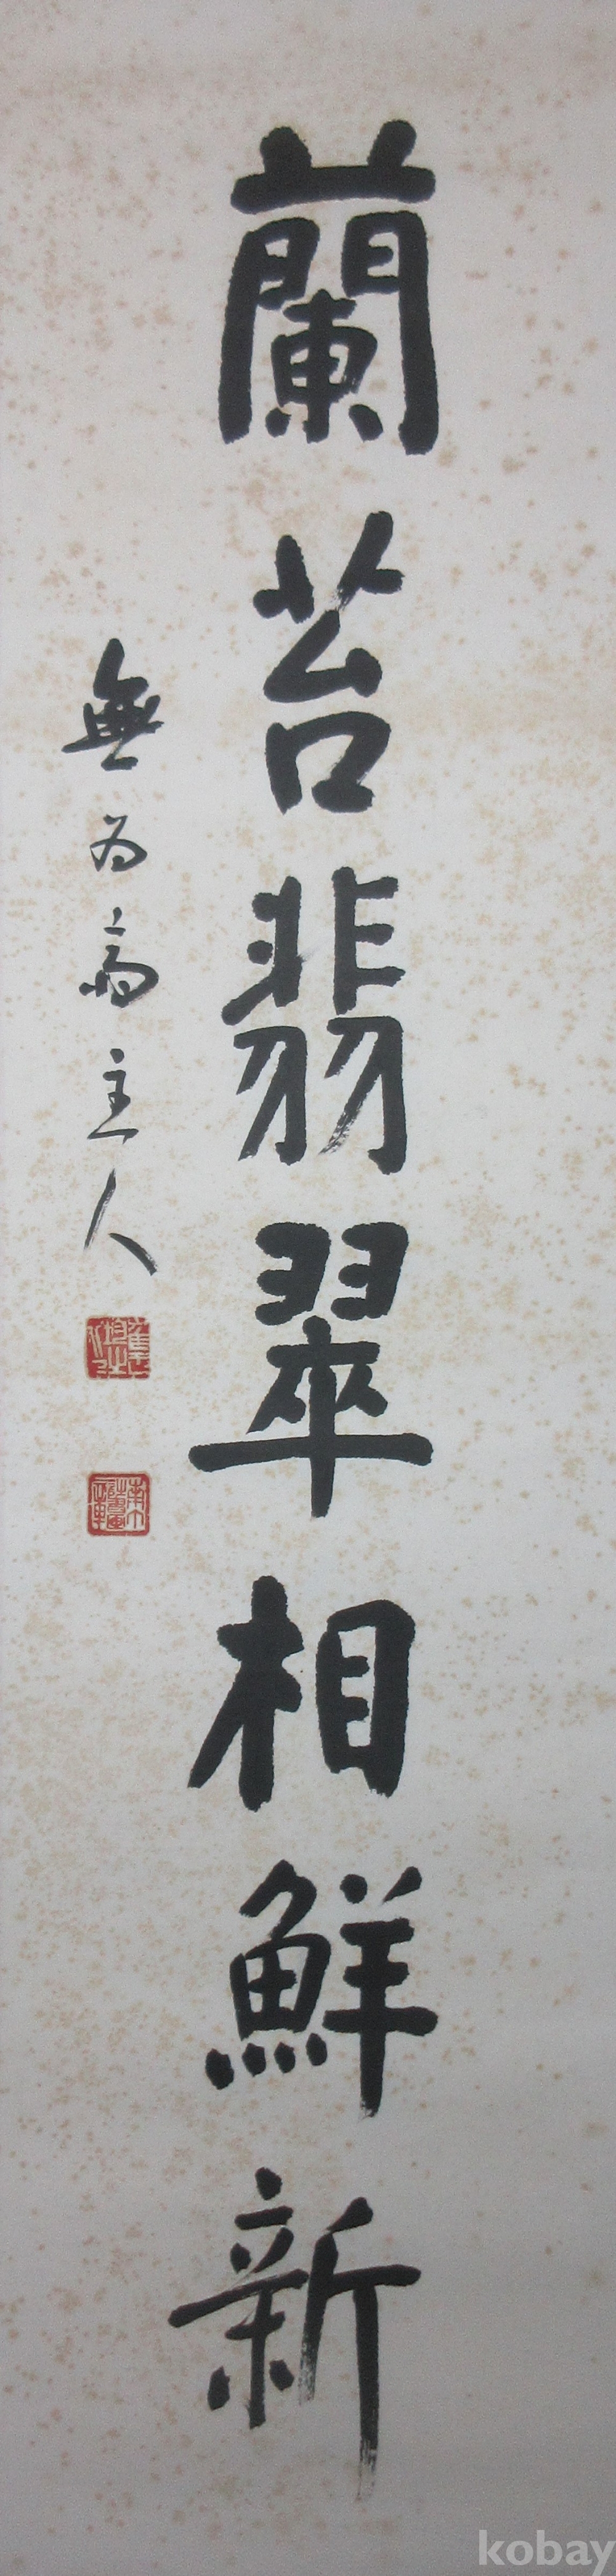 蘭苕翡翠相鮮新
無為斋主人
kobay